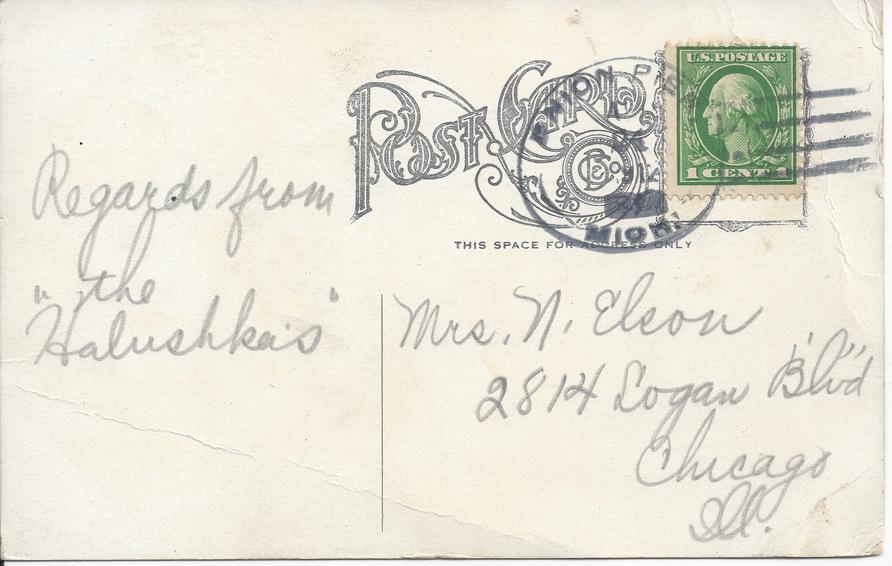 POST CARD
U.S. POSTAGE
1 CENT 1
UNION PIER
MICH.
THIS SPACE FOR ADDRESS ONLY
Regards from
"the
Halushka's"
Mrs. N. Elson
2814 Logan "Blvd"
Chicago
Ill.